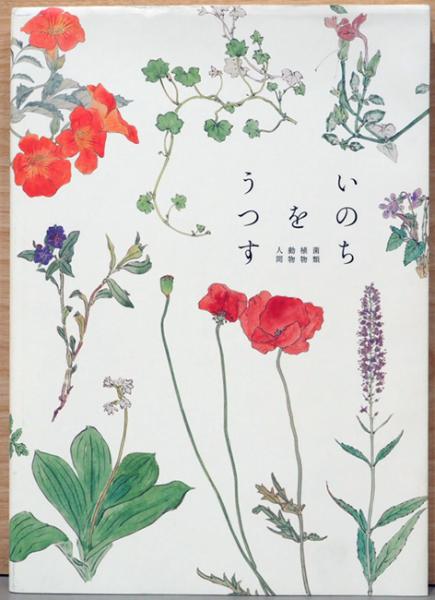 いのち
を
うつす
菌類
植物
動物
人間